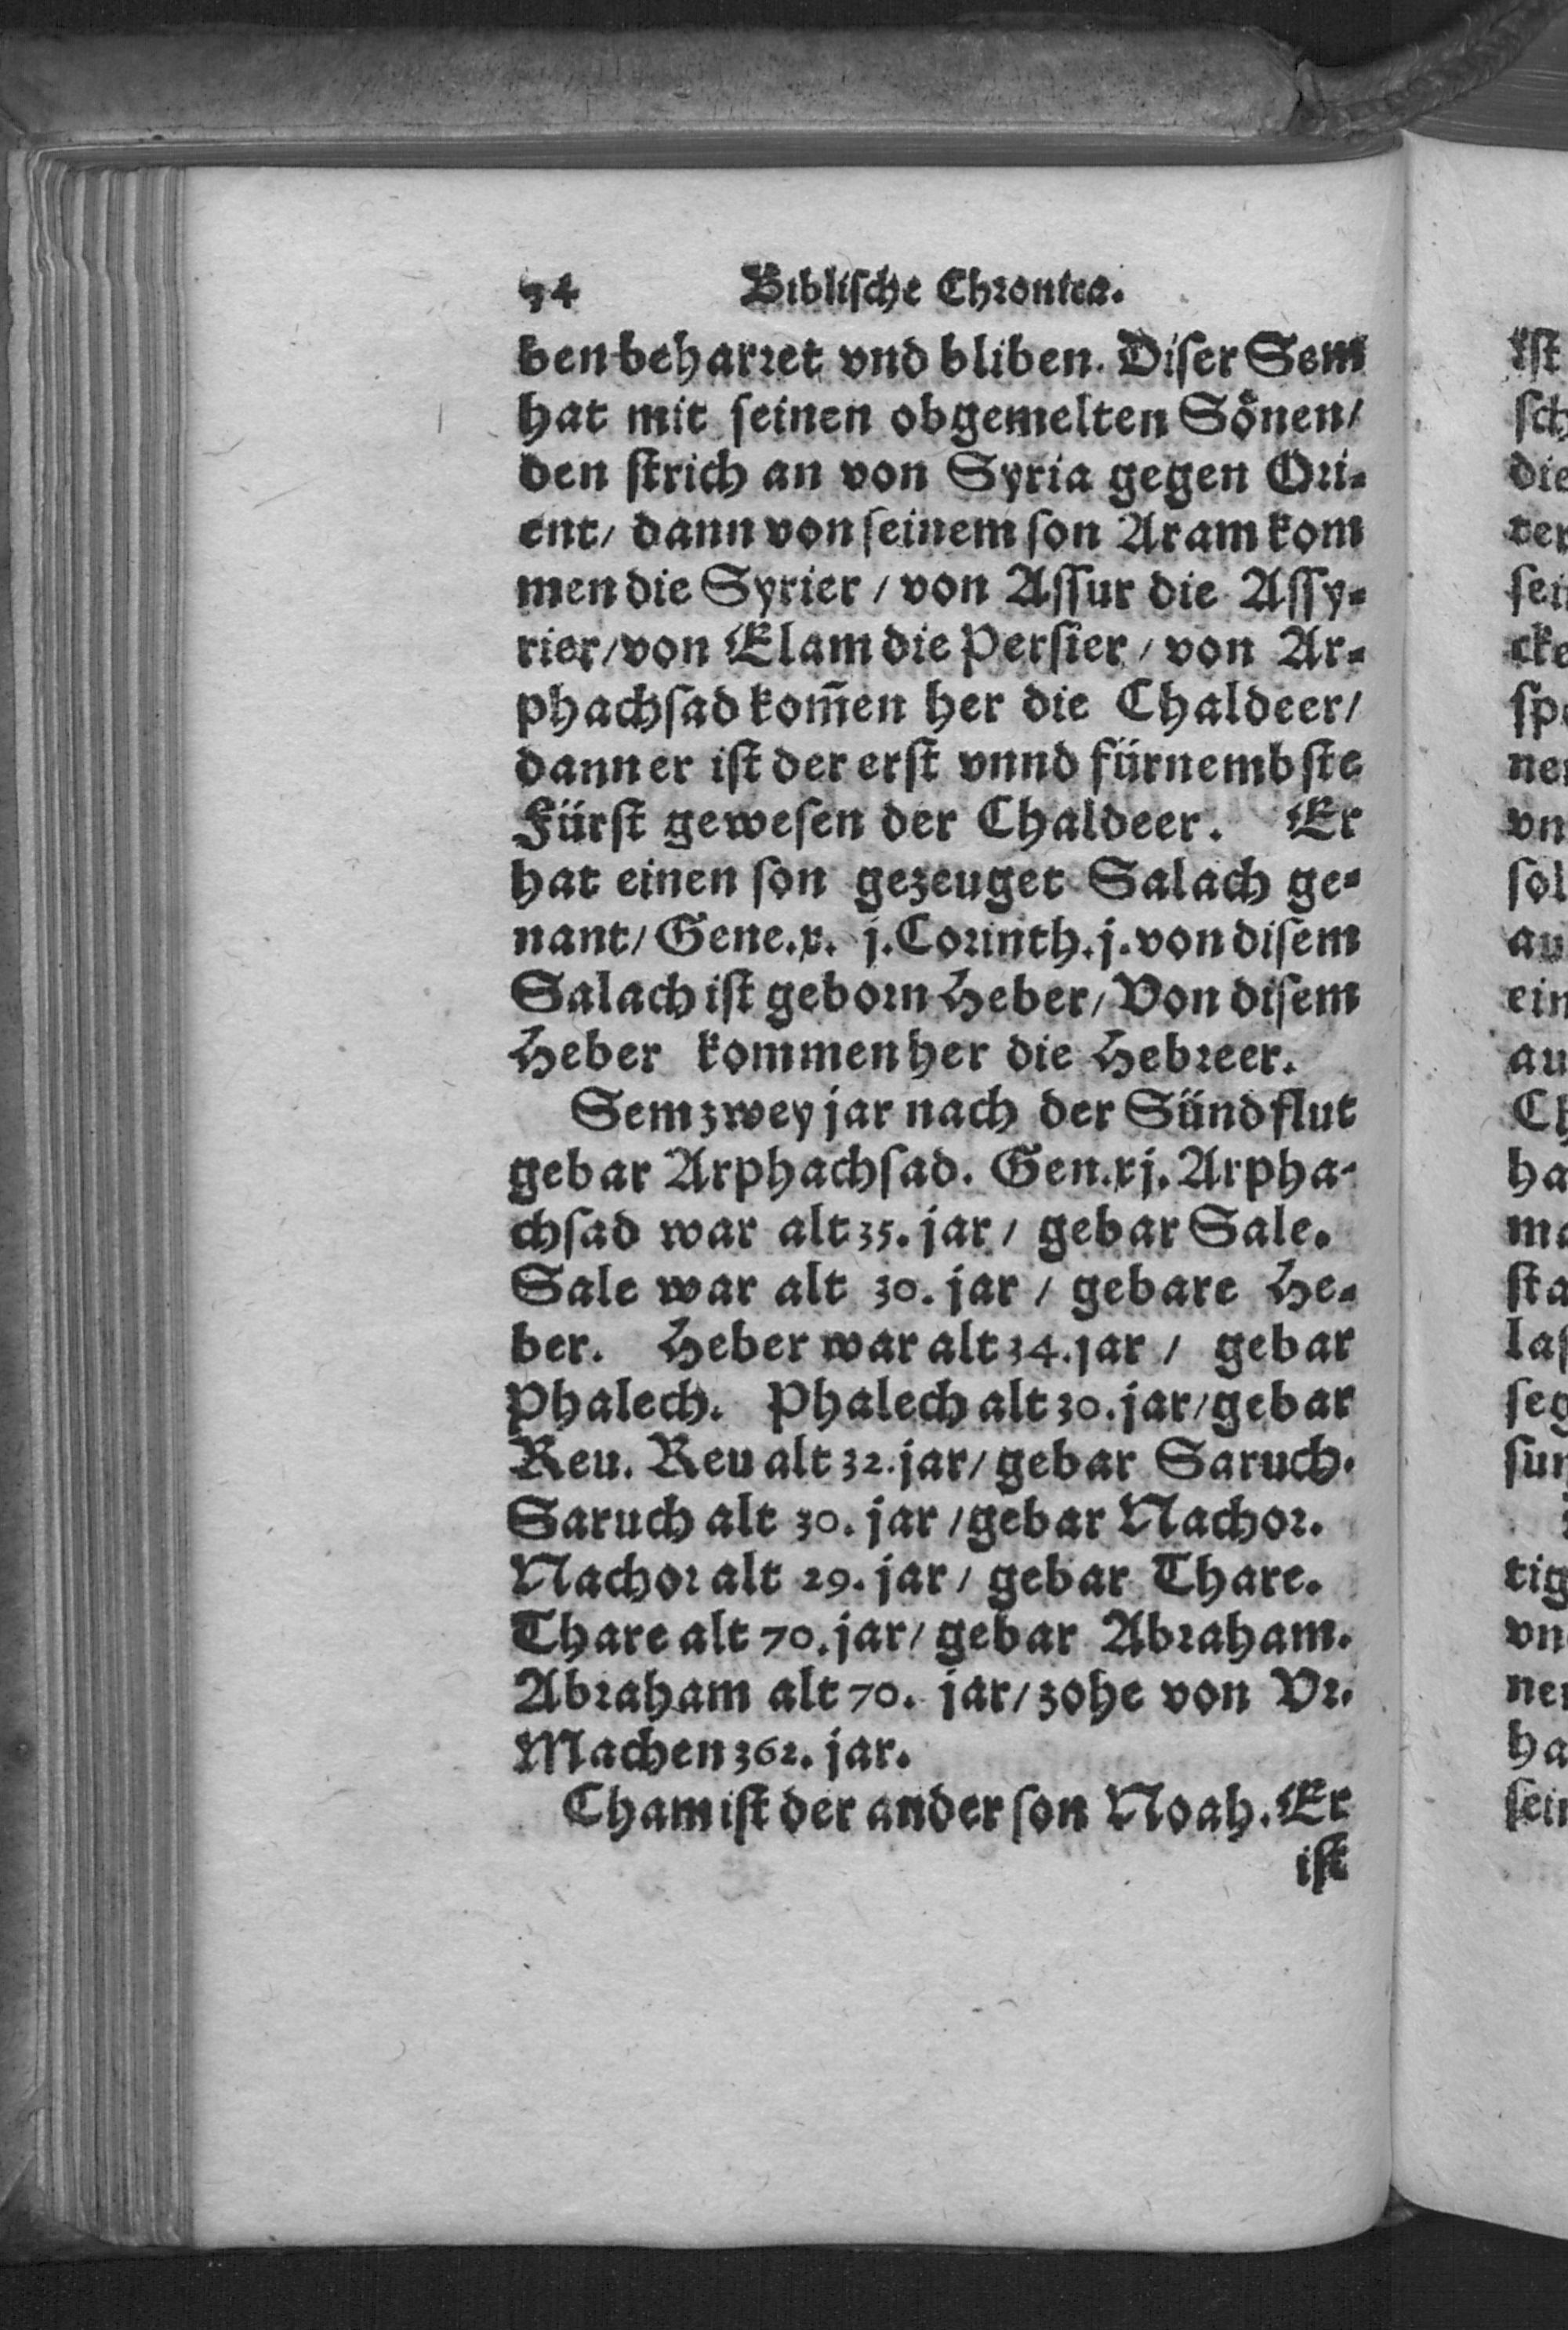 54 Biblische Chronica.
ben beharret vnd bliben. Diser Sem
hat mit seinen obgemelten Soͤnen/
den strich an von Syria gegen Ori-
ent/ dann von seinem son Aram kom
men die Syrier / von Assur die Assy-
rier/von Elam die Persier / von Ar-
phachsad kom̃en her die Chaldeer/
dann er ist der erst vnnd fürnembste
Fürst gewesen der Chaldeer. Er
hat einen son gezeuget Salach ge-
nant/ Gene.x. j.Corinth.j. von disem
Salach ist geborn Heber/ Von disem
Heber kommen her die Hebreer.
Sem zwey jar nach der Sündflut
gebar Arphachsad. Gen.xj. Arpha-
chsad war alt 35. jar / gebar Sale.
Sale war alt 30. jar / gebare He-
ber. Heber war alt 34. jar / gebar
Phalech. Phalech alt 30. jar/gebar
Reu. Reu alt 32. jar/ gebar Saruch.
Saruch alt 30. jar /gebar Nachor.
Nachor alt 29. jar / gebar Thare.
Thare alt 70. jar/ gebar Abraham.
Abraham alt 70. jar/ zohe von Vr.
Machen 362. jar.
Cham ist der ander son Noah. Er
ist